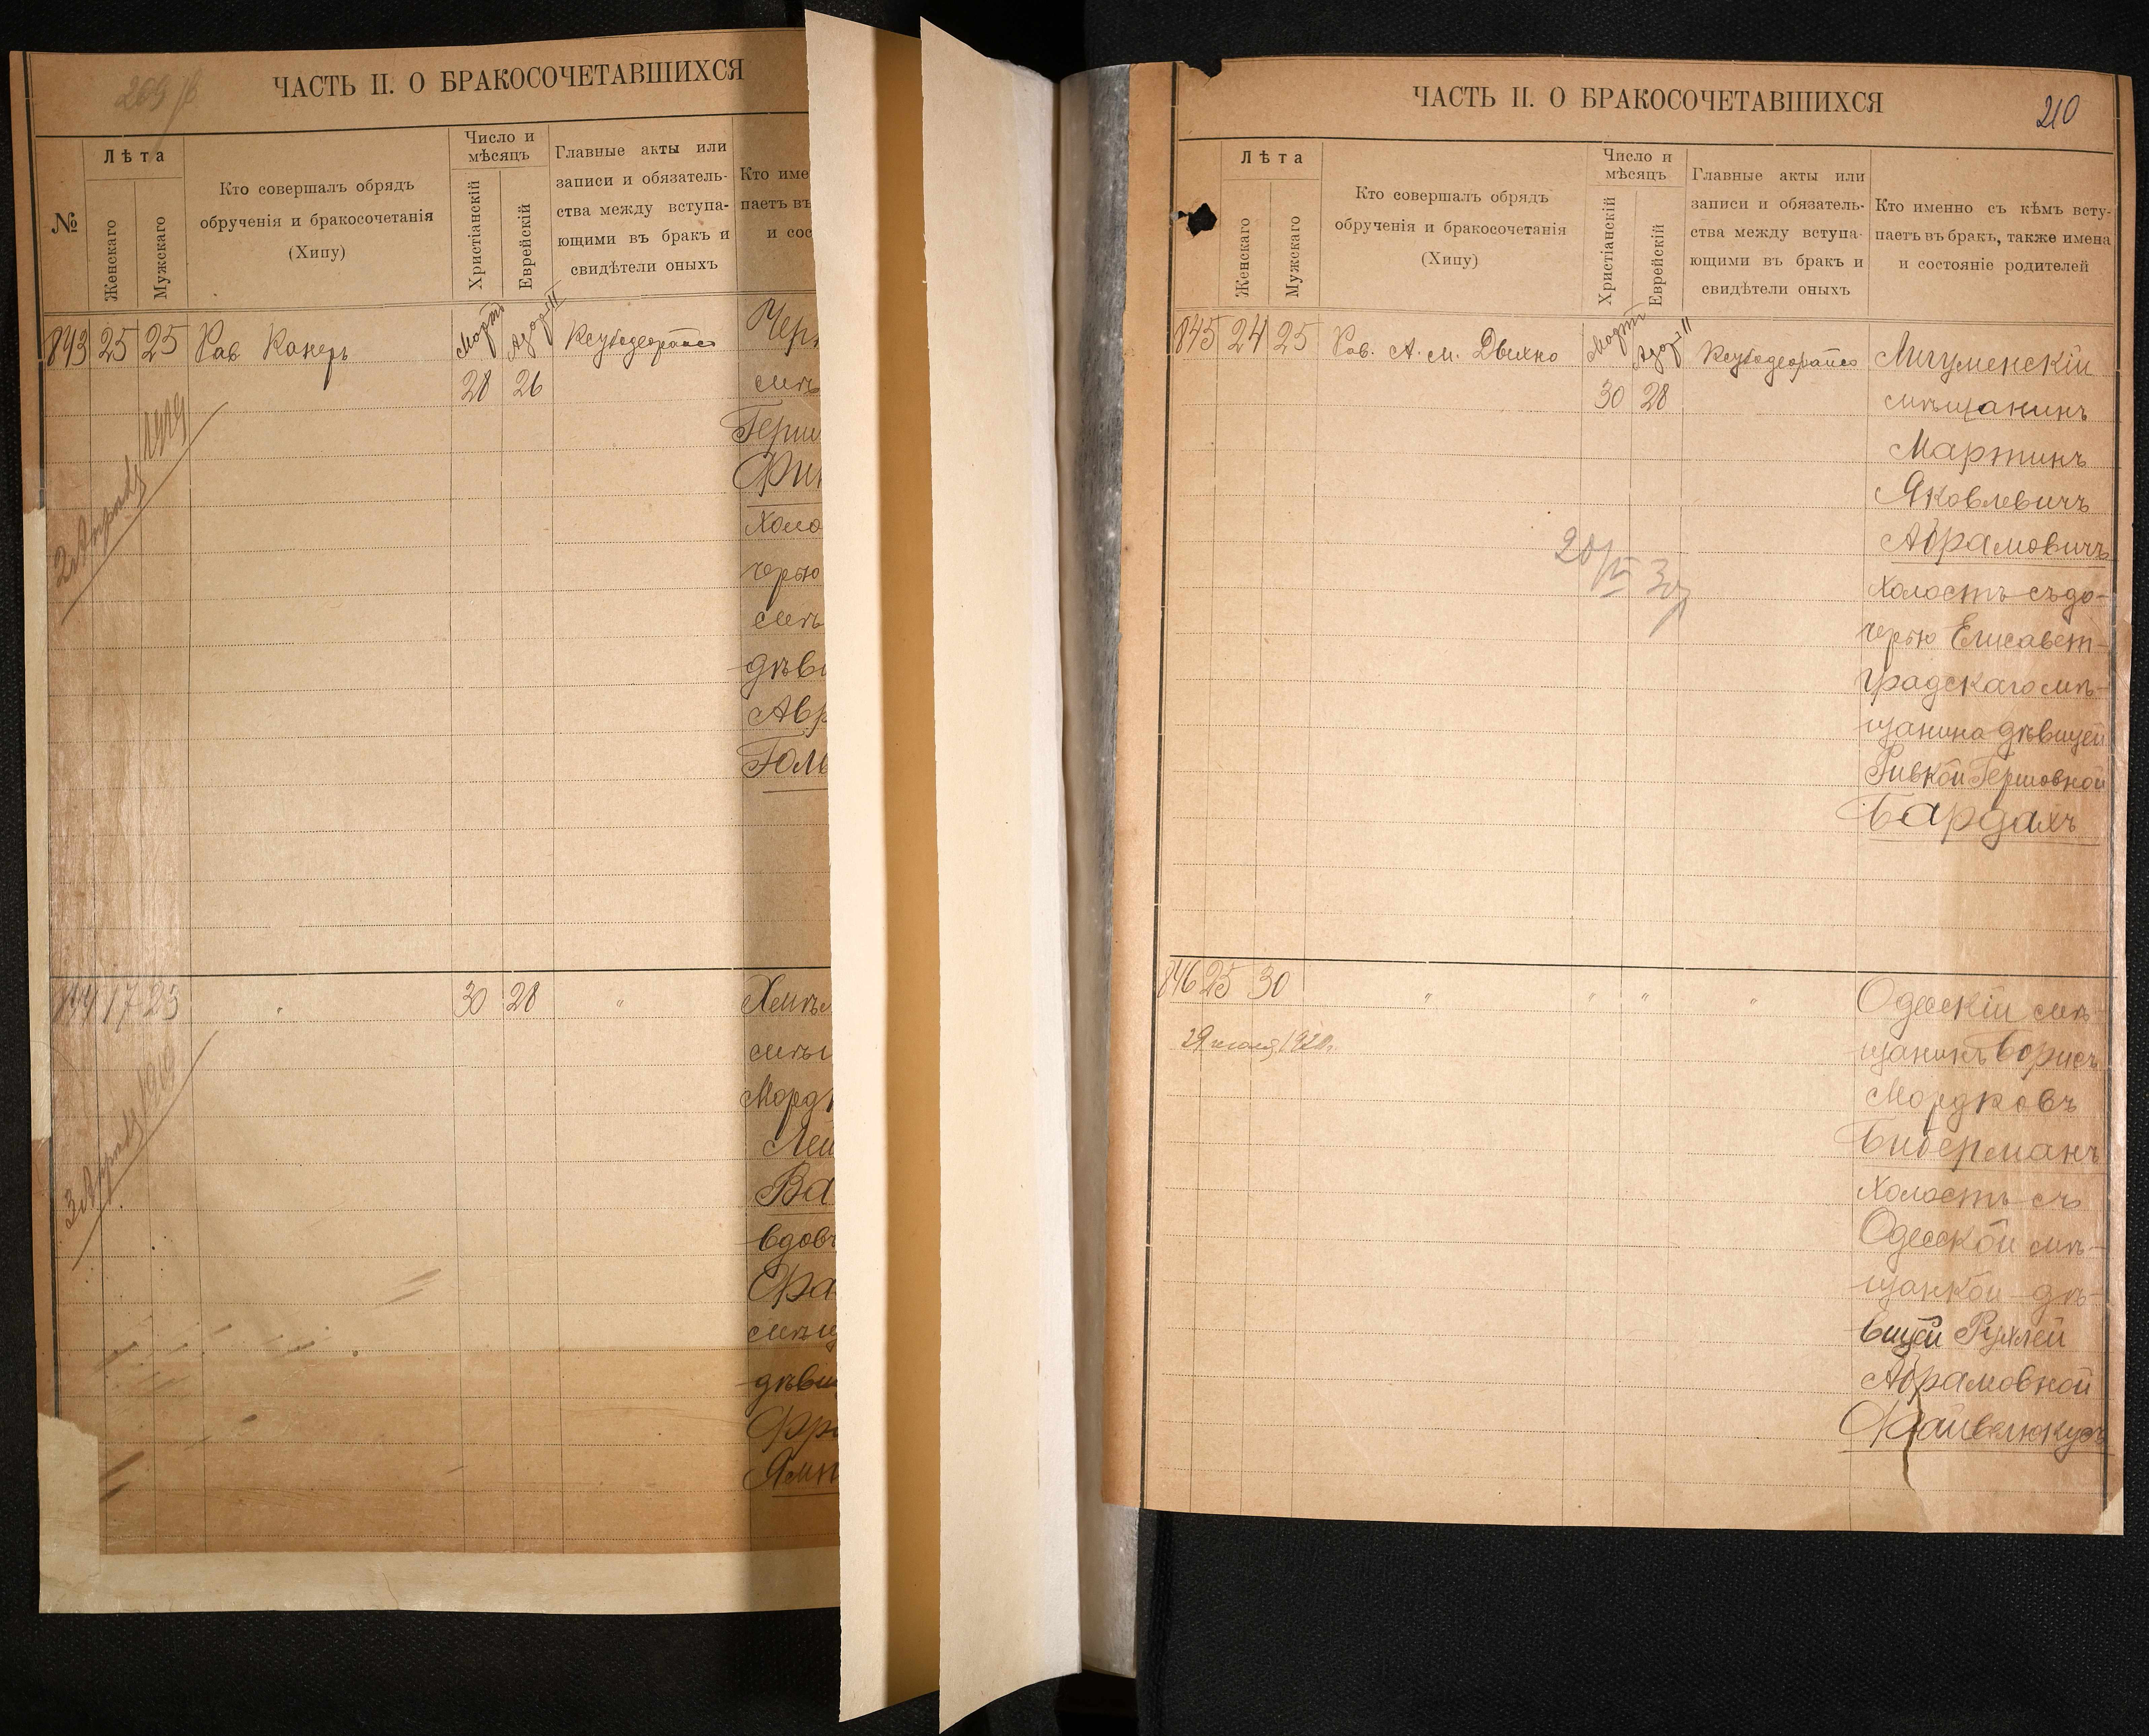 ЧАСТЬ II. О БРАКОСОЧЕТАВШИХСЯ
№
Лѣта
Женскаго
Мужскаго
Кто совершалъ обрядъ
обрученія и бракосочетанія
(Хипу)
Число и
мѣсяцъ
Христіанскій
Еврейскій
Главные акты или
записи и обязатель-
ства между вступа-
ющими въ бракъ и
свидѣтели оныхъ
Кто име
паетъ въ
и сос
843 25 25 Рав Канеръ Мартъ Адоръ II
28 26
сѣмъ
Герш
Фин
Холо
черью
дѣви
Авр
Голь
2 Апрѣля 1919
844 17 23 " 30 28 "
Морд
Лей
Ва
вдов
Фра
дѣви
Ямп
3 Апрѣля 1919
ЧАСТЬ II. О БРАКОСОЧЕТАВШИХСЯ
210
Лѣта
Женскаго
Мужскаго
Кто совершалъ обрядъ
обрученія и бракосочетанія
(Хипу)
Число и
мѣсяцъ
Христіанскій
Еврейскій
Главные акты или
записи и обязатель-
ства между вступа-
ющими въ бракъ и
свидѣтели оныхъ
Кто именно съ кѣмъ всту-
паетъ въ бракъ, также имена
и состояніе родителей
845 24 25 Рав. А. М. Дыхно Мартъ Адоръ II
30 28
мѣщанинъ
Мартинъ
Яковлевичъ
Абрамовичъ
холостъ съ до-
черью Елисавет-
градскаго мѣ-
щанина дѣвицей
Ривкой Гершовной
Бардахъ
846 25 30 " " " "
Одесскій мѣ-
щанинъ Борисъ
Мордковъ
Биберманъ
холостъ съ
Одесской мѣ-
щанкой дѣ-
вицей Рухлей
Абрамовной
29 1920г.